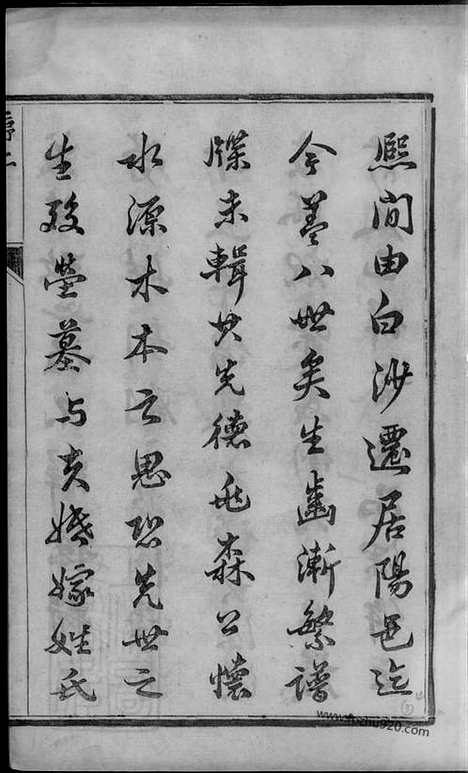 熙間由白沙遷居陽邑迄
今蓋八世矣生齒漸繁譜
牒未輯其先德兆森公懷
水源木本之思恐先世之
生歿塋墓與夫婚嫁姓氏